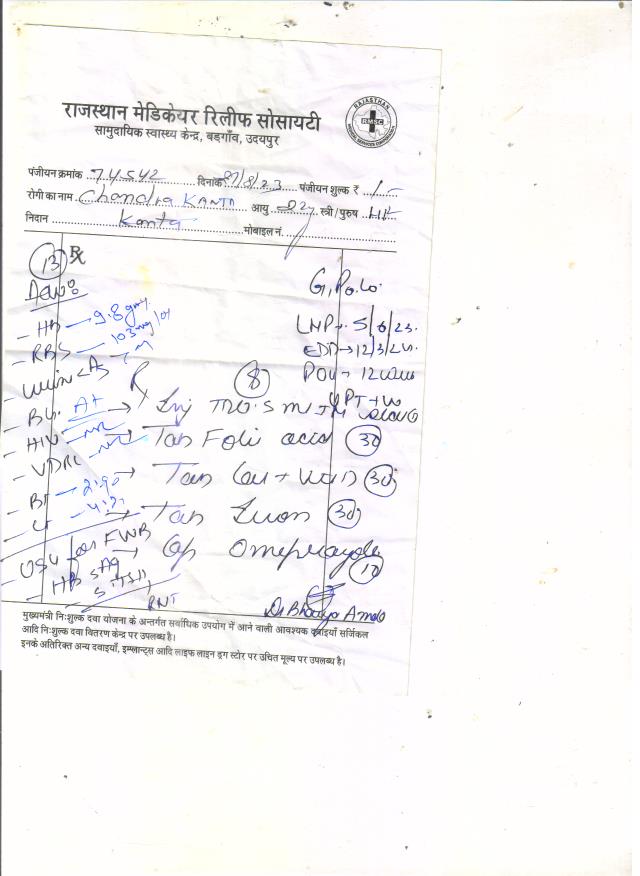 राजस्थान मेडिकेयर रिलीफ सोसायटी
सामुदायिक स्वास्थ्य केन्द्र, बड़गाँव, उदयपुर
RAJASTHAN
RMSC
MEDICAL SERVICES CORPORATION
पंजीयन क्रमांक 74542 दिनांक /8/23 पंजीयन शुल्क ₹ 1/-
रोगी का नाम Chandra KANTA आयु 22y स्त्री / पुरुष
निदान Kanta मोबाइल नं.
13 Rx
Adv:
G1P0L0
- HB → 9.8 gm%
LMP → 5/6/23
- RBS → 103 mg/dl
EDD → 12/3/24
- Urine
POG → 12
8
UPT +ve
- BG. A+
Rx → Inj TT 0.5 ml IM
- HIV - NR
→ Tab Folic acid 30
- VDRL - NR
- BT → 2:90
→ Tab Cal + Vit D 30
- CT - 4:
→ Tab Iron 30
USG for FWB
→ Cap Omeprazole 10
- HBsAg
S. TSH
RNT
मुख्यमंत्री निःशुल्क दवा योजना के अन्तर्गत सर्वाधिक उपयोग में आने वाली आवश्यक दवाइयाँ सर्जिकल
आदि निःशुल्क दवा वितरण केन्द्र पर उपलब्ध है।
इनके अतिरिक्त अन्य दवाइयाँ, इम्प्लान्ट्स आदि लाइफ लाइन ड्रग स्टोर पर उचित मूल्य पर उपलब्ध है।